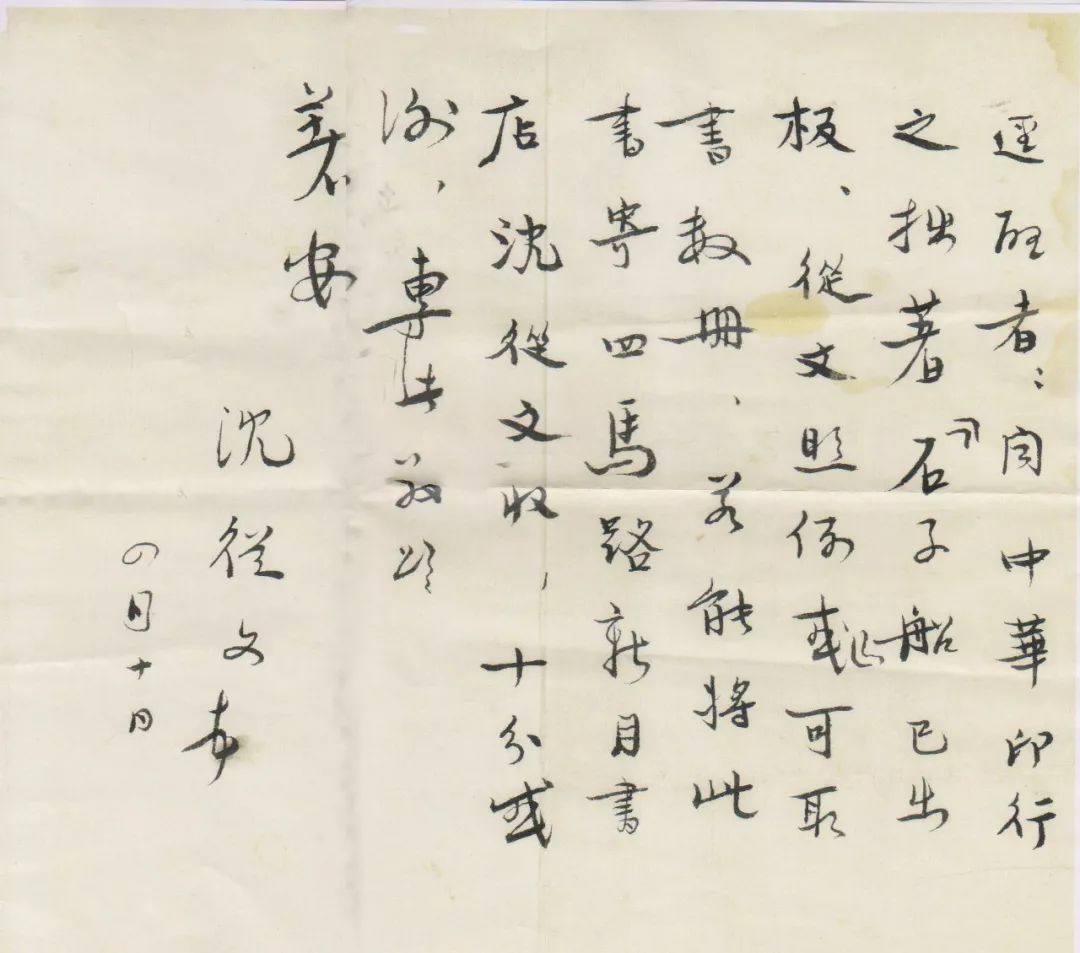 逕啓者：聞中華印行
之拙著「石子船」已出
板、從文照例或可取
書數冊、若能將此
書寄四馬路新月書
店沈從文收、十分感
謝、專此敬頌
著安
沈從文
四月十日